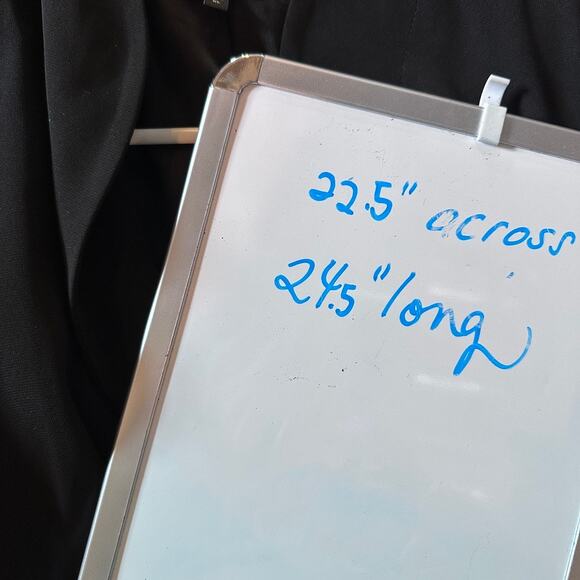 22.5" across
24.5" long